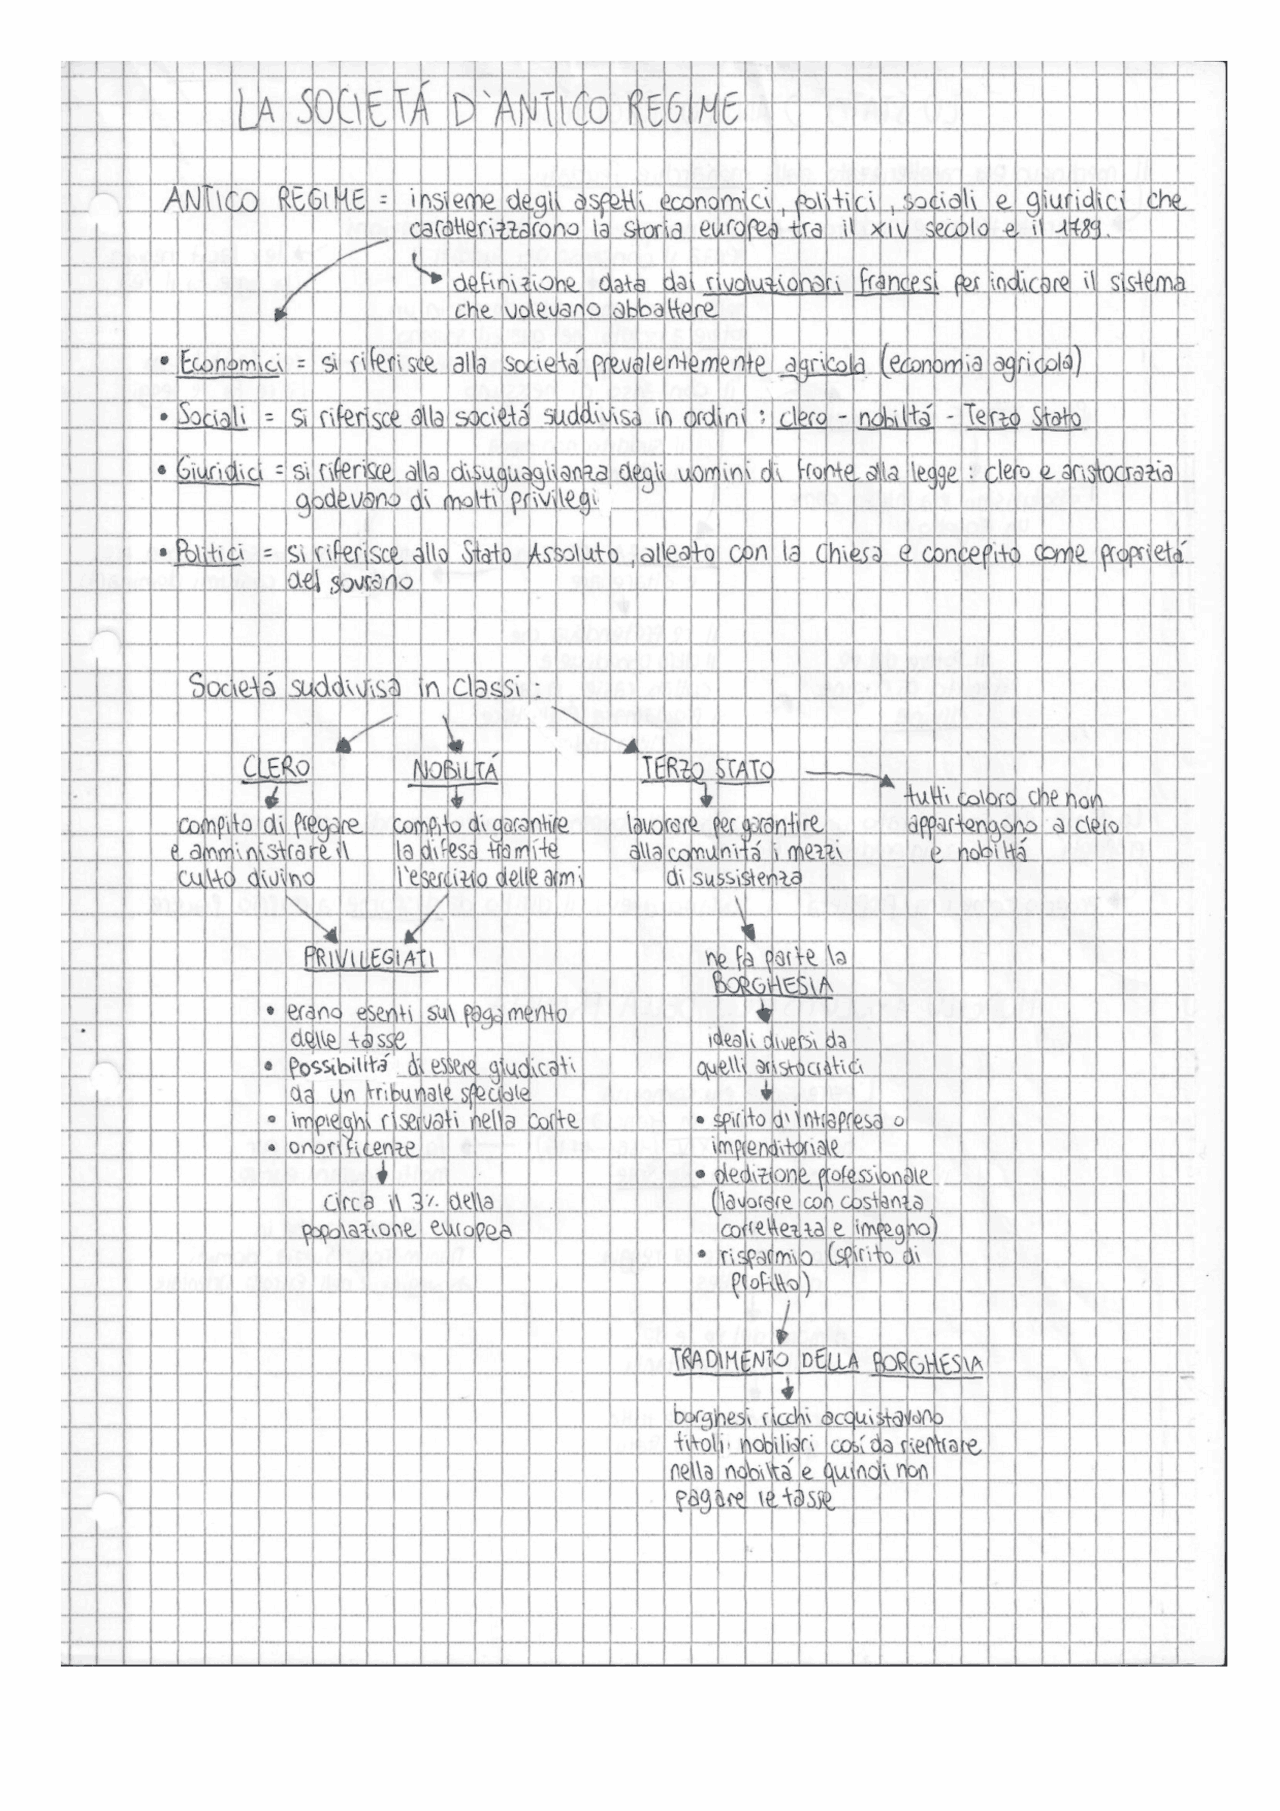 LA SOCIETÁ D'ANTICO REGIME
ANTICO REGIME = insieme degli aspetti economici, politici, sociali e giuridici che
caratterizzarono la storia europea tra il XIV secolo e il 1789.
definizione data dai rivoluzionari francesi per indicare il sistema
che volevano abbattere
• Economici = si riferisce alla societá prevalentemente agricola (economia agricola)
• Sociali = si riferisce alla societá suddivisa in ordini : clero - nobiltá - Terzo Stato
• Giuridici = si riferisce alla disuguaglianza degli uomini di fronte alla legge : clero e aristocrazia
godevano di molti privilegi
• Politici = si riferisce allo Stato Assoluto, alleato con la Chiesa e concepito come proprietá
del sovrano
Societá suddivisa in classi :
CLERO
compito di pregare
e amministrare il
culto divino
NOBILTÁ
compito di garantire
la difesa tramite
l'esercizio delle armi
PRIVILEGIATI
• erano esenti sul pagamento
delle tasse
• possibilitá di essere giudicati
da un tribunale speciale
• impieghi riservati nella corte
• onorificenze
circa il 3% della
popolazione europea
TERZO STATO
tutti coloro che non
appartengono a clero
e nobiltá
lavorare per garantire
alla comunitá i mezzi
di sussistenza
ne fa parte la
BORGHESIA
ideali diversi da
quelli aristocratici
• spirito d'intrapresa o
imprenditoriale
• dedizione professionale
(lavorare con costanza
correttezza e impegno)
• risparmio (spirito di
profitto)
TRADIMENTO DELLA BORGHESIA
borghesi ricchi acquistavano
titoli nobiliari cosí da rientrare
nella nobiltá e quindi non
pagare le tasse